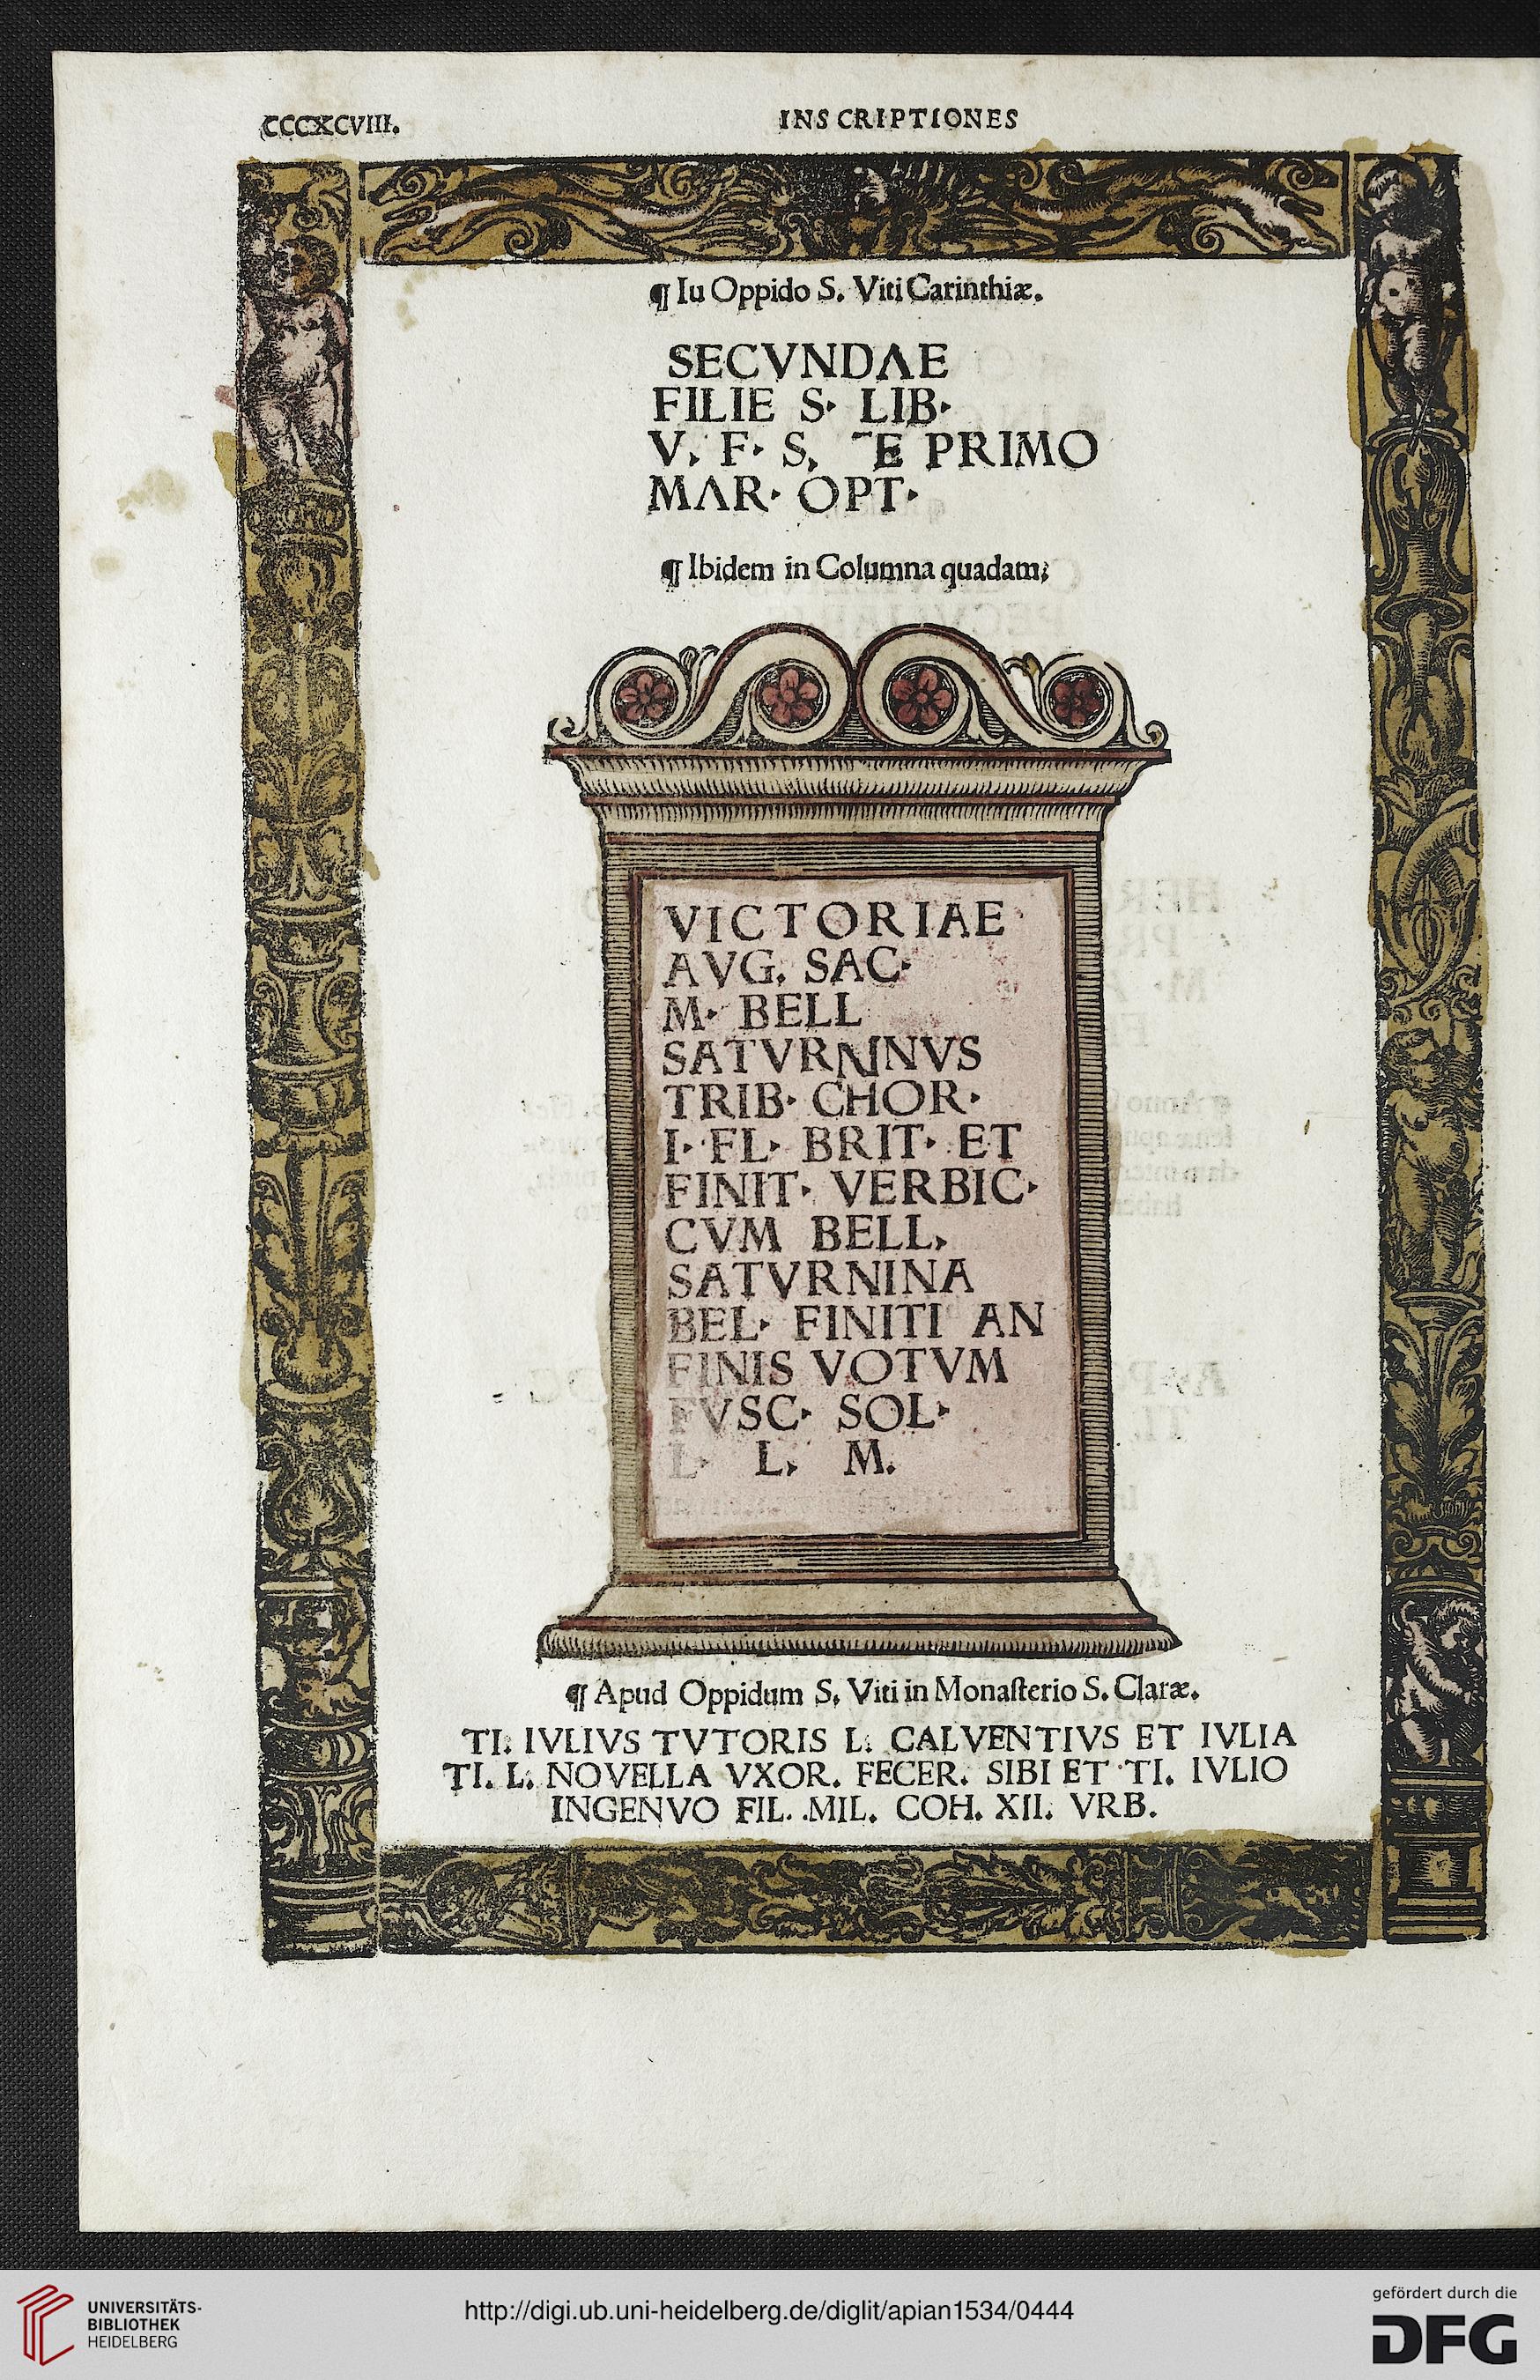 CCCXCVIII.
INSCRIPTIONES
¶ Iu Oppido S. Viti Carinthiæ.
SECVNDAE
FILIE S· LIB·
V, F· S, E PRIMO
MAR· OPT·
¶ Ibidem in Columna quadam;
VICTORIAE
AVG, SAC·
M· BELL
SATVRNINVS
TRIB· CHOR·
I· FL· BRIT· ET
FINIT· VERBIC·
CVM BELL,
SATVRNINA
BEL· FINITI AN
FINIS VOTVM
FVSC· SOL·
L· L, M.
¶ Apud Oppidum S, Viti in Monaſterio S. Claræ.
TI. IVLIVS TVTORIS L. CALVENTIVS ET IVLIA
TI. L. NOVELLA VXOR. FECER. SIBI ET TI. IVLIO
INGENVO FIL. MIL. COH. XII. VRB.
UNIVERSITÄTS-
BIBLIOTHEK
HEIDELBERG
http://digi.ub.uni-heidelberg.de/diglit/apian1534/0444
gefördert durch die
DFG